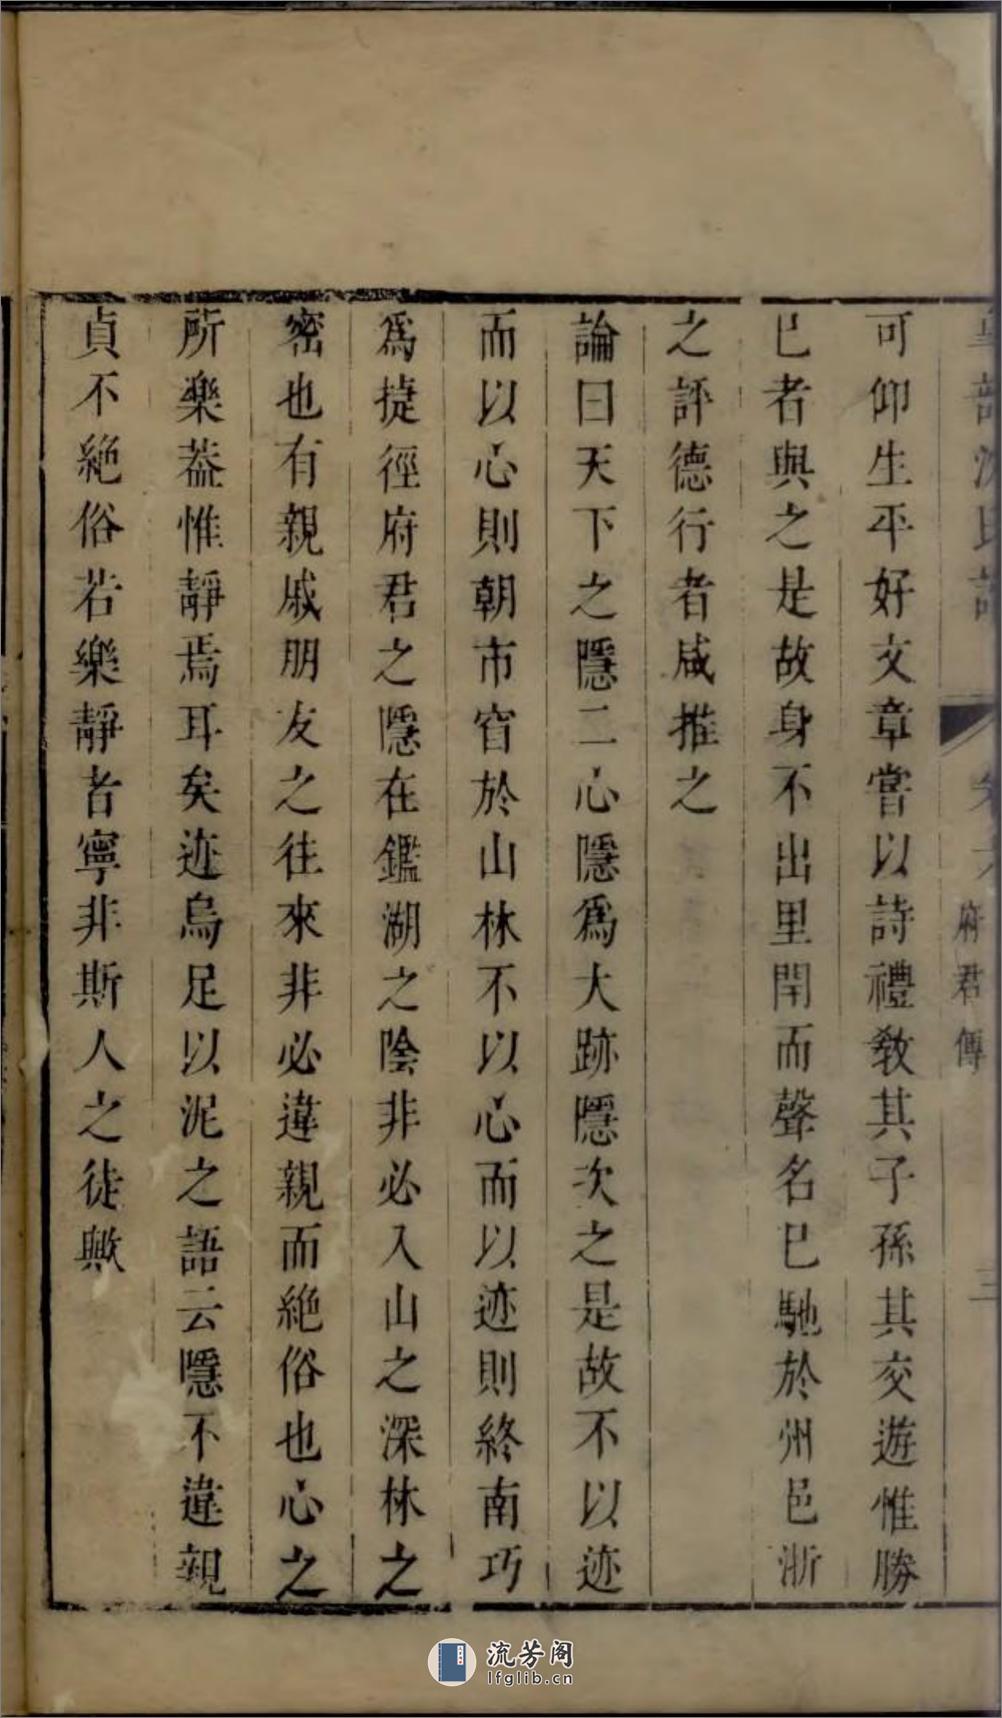 沈氏
府君傳
三
可仰生平好文章嘗以詩禮教其子孫其交遊惟勝
已者與之是故身不出里閈而聲名已馳於州邑浙
之評德行者咸推之
論曰天下之隱二心隱爲大跡隱次之是故不以迹
而以心則朝市窅於山林不以心而以迹則終南巧
爲捷徑府君之隱在鑑湖之陰非必入山之深林之
密也有親戚朋友之往來非必違親而絶俗也心之
所樂葢惟靜焉耳矣迹烏足以泥之語云隱不違親
貞不絶俗若樂靜者寧非斯人之徒歟
流芳阁
lfglib.cn